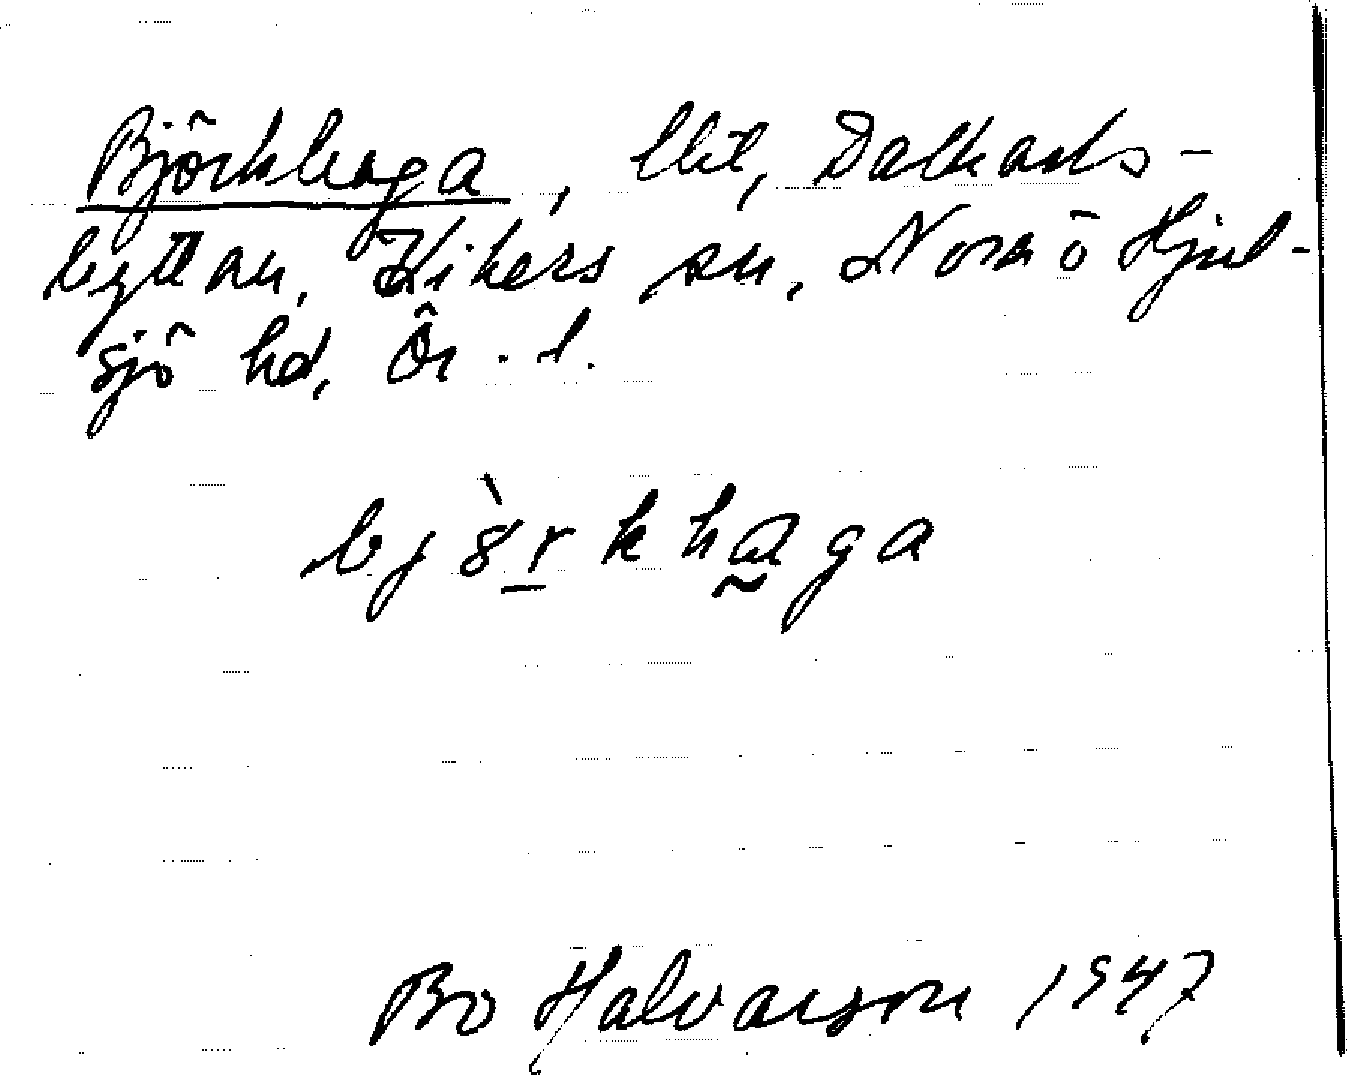 Björkhaga, lht, Dalkarls-
hyttan, Vikers sn, Nora o Hjul-
sjö hd, Ör. l.
bjö̀rkhaga
Bo Halvarson 1947